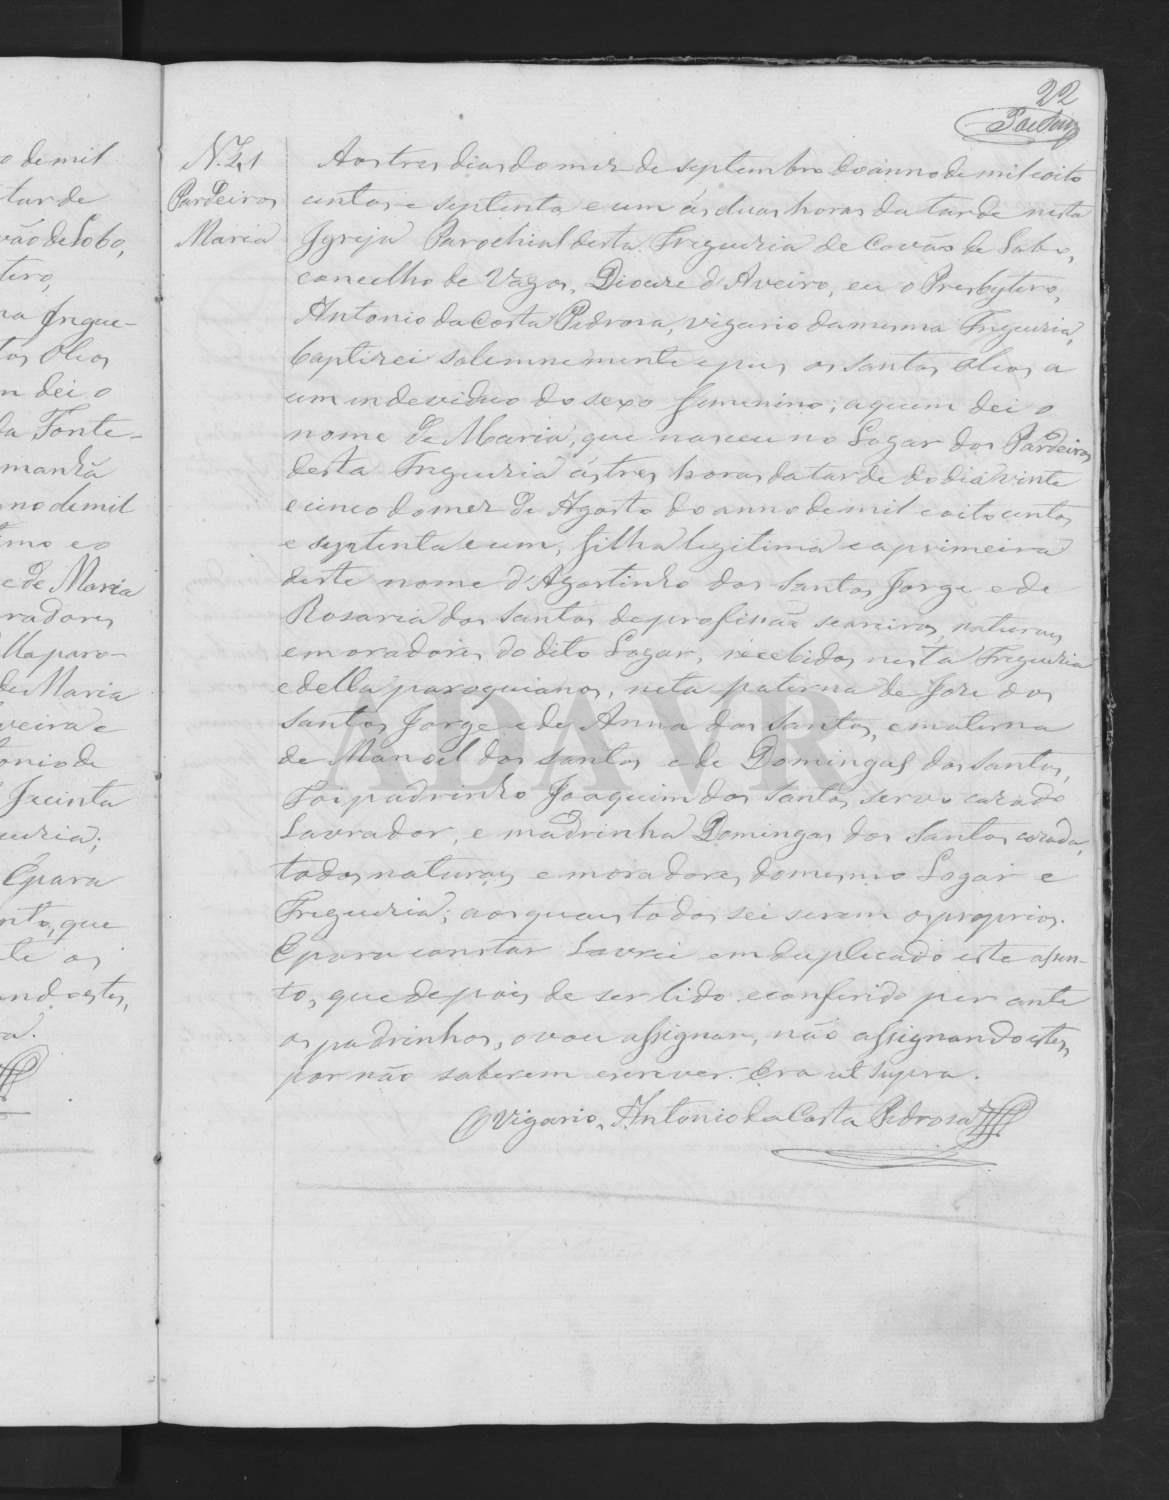 22
N.º 41
Pardeiros
Maria
Aos tres dias do mez de septembro do anno de mil e oito
centos e septenta e um ás duas horas da tarde nesta
Igreja Parochial desta Freguezia de Covão de Lobo,
concelho de Vagos, Diocese d'Aveiro, eu o Presbytero,
Antonio da Costa Pedrosa, vigario da mesma Freguezia,
baptizei solemnemente e puz os santos oleos a
um individuo do sexo femenino; a quem dei o
nome de Maria, que nasceu no Logar dos Pardeiros
desta Freguezia ás tres horas da tarde do dia vinte
e cinco do mez de Agosto do anno de mil e oito centos
e septenta e um, filha legitima e a primeira
deste nome d'Agostinho dos Santos Jorge e de
Rosaria dos Santos de profissão seareiros, naturaes
e moradores do dito Logar, recebidos nesta Freguezia
e della paroquianos, neta paterna de Joze dos
Santos Jorge e de Anna dos Santos, e materna
de Manoel dos Santos e de Domingas dos Santos,
Foi padrinho Joaquim dos Santos servo cazado
Lavrador, e madrinha Domingas dos Santos cazada,
todos naturaes e moradores do mesmo Logar e
Freguezia; aos quaes todos sei serem os proprios.
E para constar Lavrei em duplicado este assen-
to, que depois de ser lido e conferido per ante
os padrinhos, o vou assignar, não assignando estes
por não saberem escrever. Era ut supra.
O Vigario, Antonio da Costa Pedrosa
ADAVR
o de mil
tarde
vão de Lobo,
tero,
na Fregue-
tos Oleos
m dei o
da Fonte-
manhã
no de mil
imo e o
e de Maria
radores
lla paro-
de Maria
veira e
tonio de
Jacinta
uezia;
E para
nto, que
te os
and. estes,
ra.